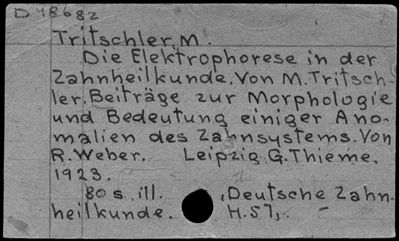 D 48682
Tritschler, M.
Die Elektrophorese in der
Zahnheilkunde. Von M. Tritsch-
ler. Beiträge zur Morphologie
und Bedeutung einiger Ano-
malien des Zahnsystems. Von
R. Weber. Leipzig, G. Thieme,
1923.
80 s., ill. „Deutsche Zahn-
heilkunde. H. 57„. -